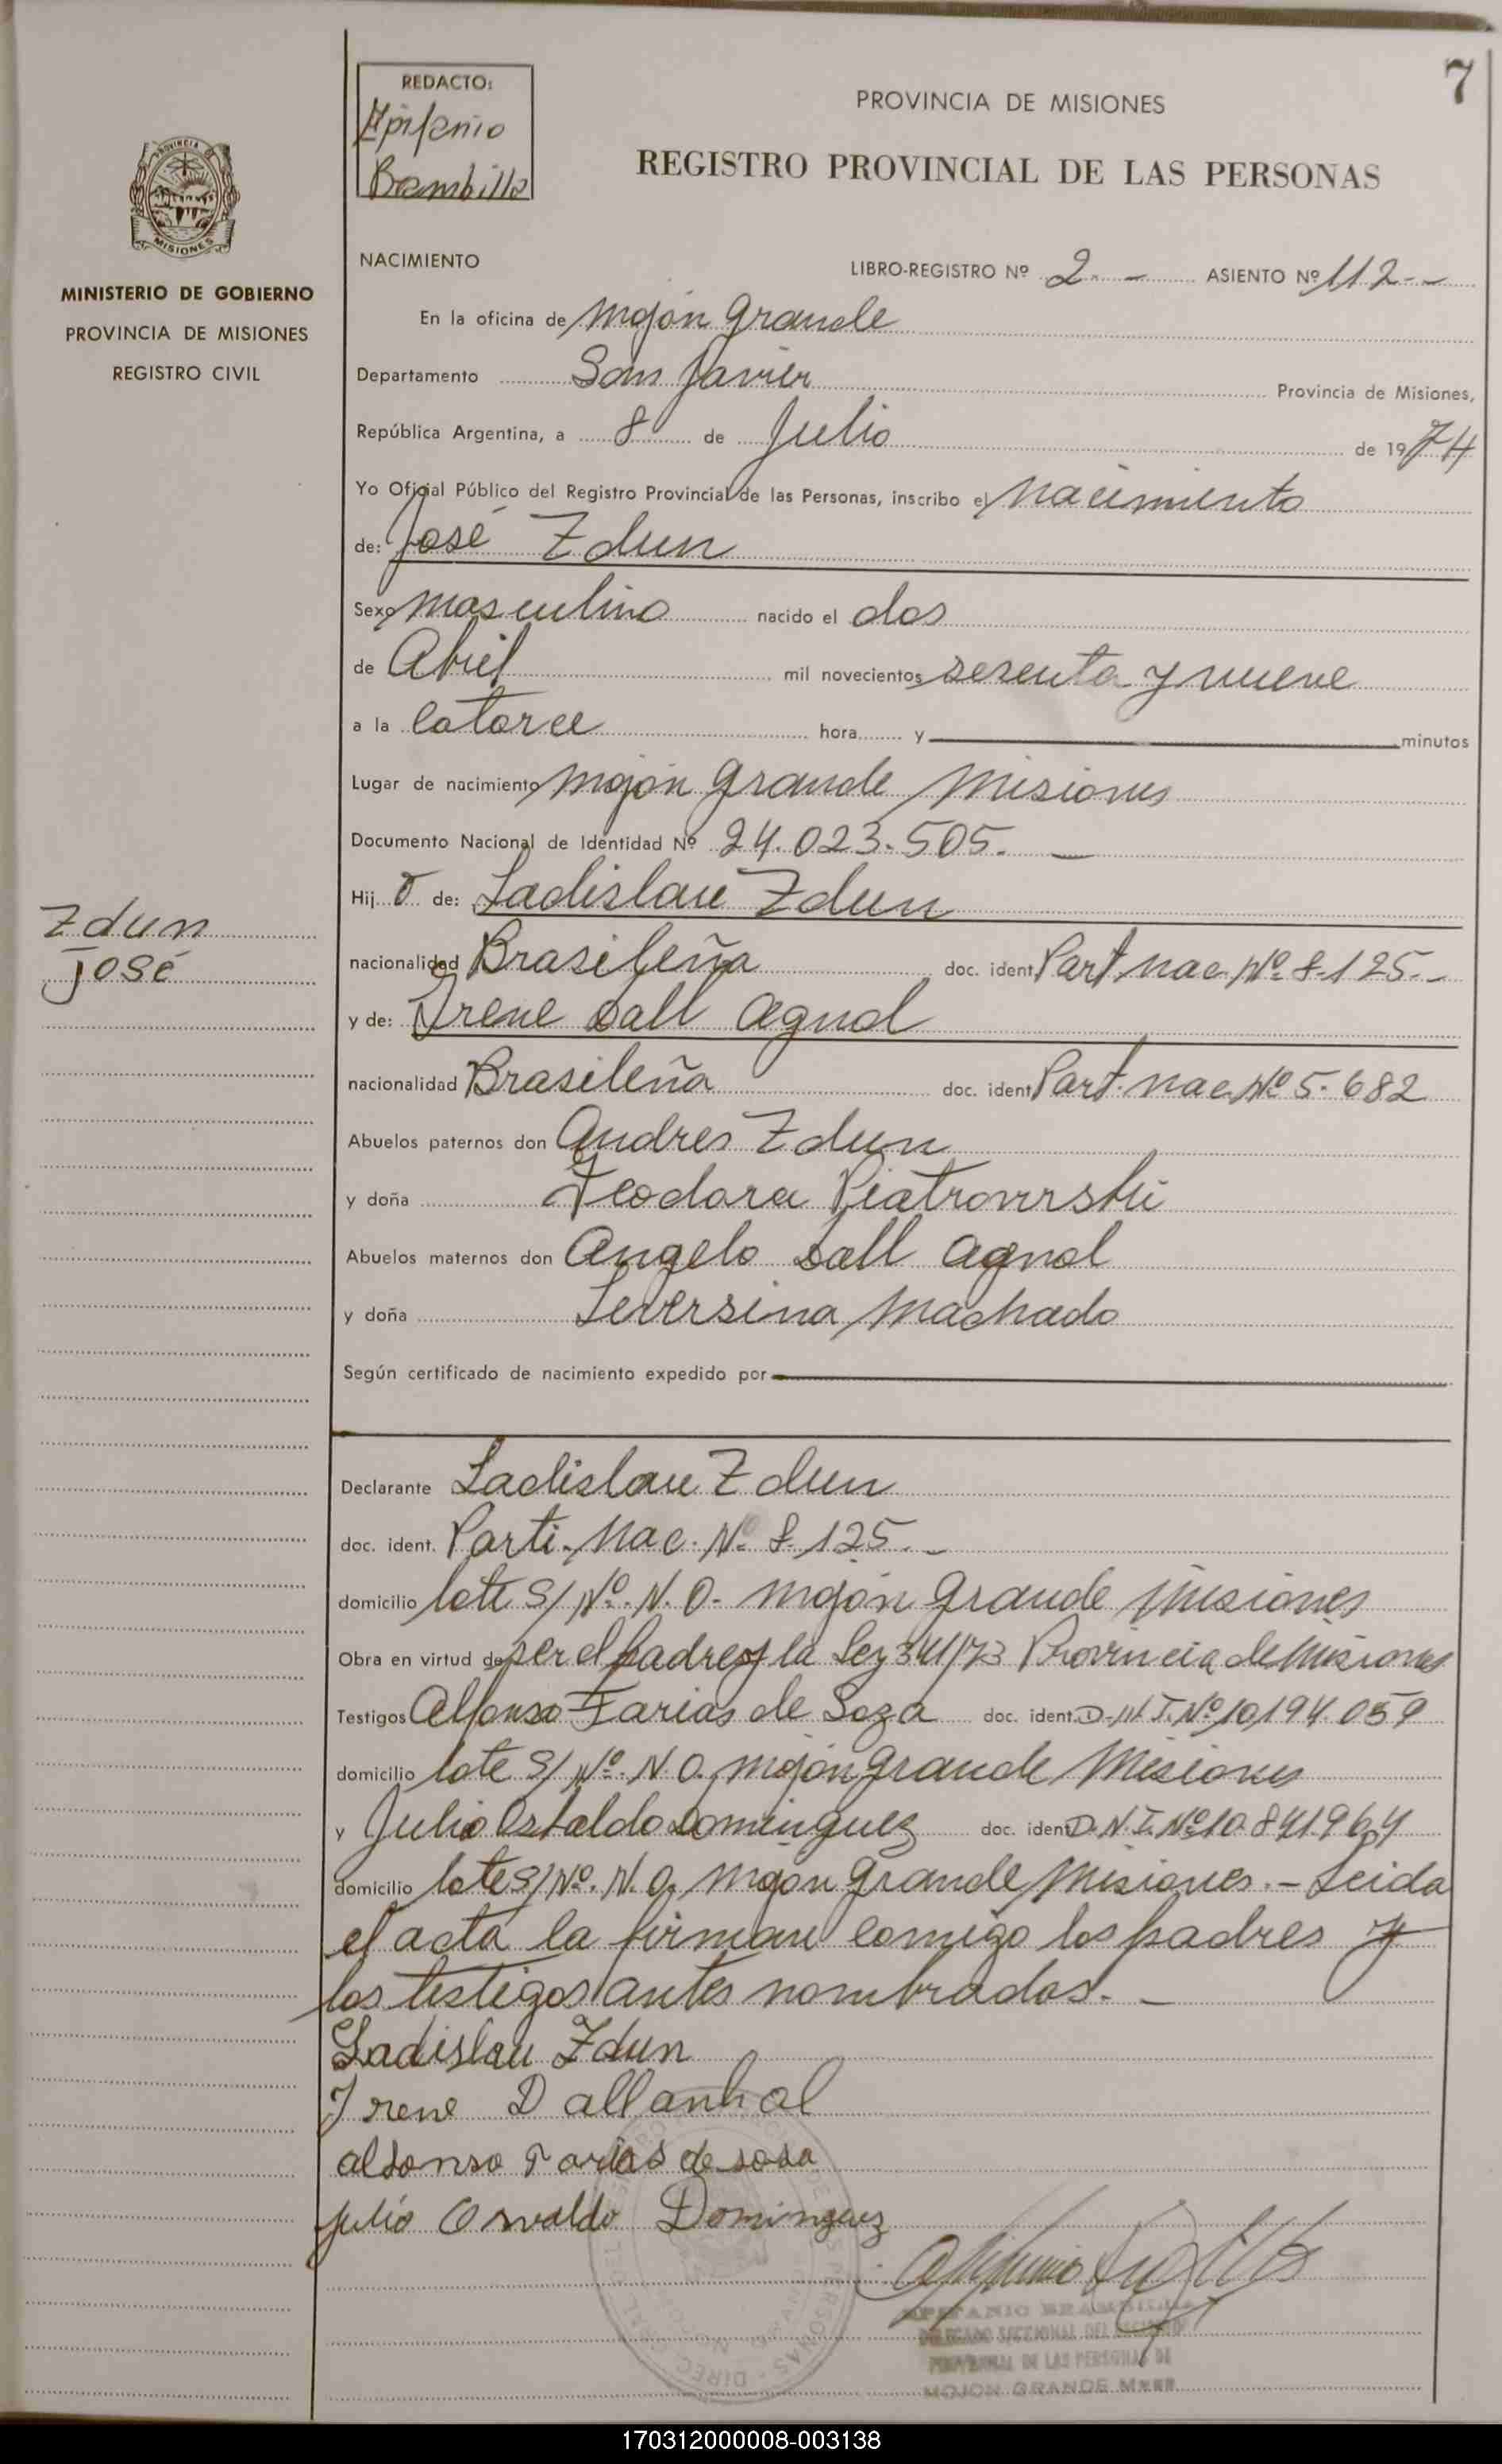 7
REDACTO:
Epifanio
Brambilla
PROVINCIA DE MISIONES
REGISTRO PROVINCIAL DE LAS PERSONAS
PROVINCIA DE
MISIONES
MINISTERIO DE GOBIERNO
PROVINCIA DE MISIONES
REGISTRO CIVIL
NACIMIENTO
LIBRO-REGISTRO Nº 2.- ASIENTO Nº 112.--
En la oficina de Mojón Grande
Departamento San Javier Provincia de Misiones,
República Argentina, a 8 de Julio de 1974
Yo Oficial Público del Registro Provincial de las Personas, inscribo el nacimiento
de: José Zdun
Sexo masculino nacido el dos
de Abril mil novecientos sesenta y nueve
a la catorce hora y minutos
Lugar de nacimiento Mojón Grande Misiones
Documento Nacional de Identidad Nº 24.023.505.-
Hijo de: Ladislau Zdun
Zdun
José
nacionalidad Brasileña doc. ident. Part. nac. Nº 8.125.-
y de: Irene Dall Agnol
nacionalidad Brasileña doc. ident. Part. nac. Nº 5.682
Abuelos paternos don Andres Zdun
y doña Teodora Piatrovrski
Abuelos maternos don Angelo Dall Agnol
y doña Seversina Machado
Según certificado de nacimiento expedido por
Declarante Ladislau Zdun
doc. ident. Parti. Nac. Nº 8.125.-
domicilio lote S/Nº. N.O. Mojón Grande Misiones
Obra en virtud de ser el padre y la Ley 341/73 Provincia de Misiones
Testigos Alfonso Farias de Soza doc. ident. D.N.I. Nº 10.194.059
domicilio lote S/Nº. N.O. Mojón Grande Misiones
y Julio Osbaldo Dominguez doc. ident. D.N.I. Nº 10.841.964
domicilio lote S/Nº. N.O. Mojón Grande Misiones.- Leida
el acta la firman comigo los padres y
los testigos antes nombrados.-
Ladislau Zdun
Irene Dallanhol
alfonso Farias de sosa
Julio Osvaldo Dominguez
EPIFANIO BRAMBILLA
DELEGADO SECCIONAL DEL REGISTRO
PROVINCIAL DE LAS PERSONAS DE
MOJON GRANDE
170312000008-003138